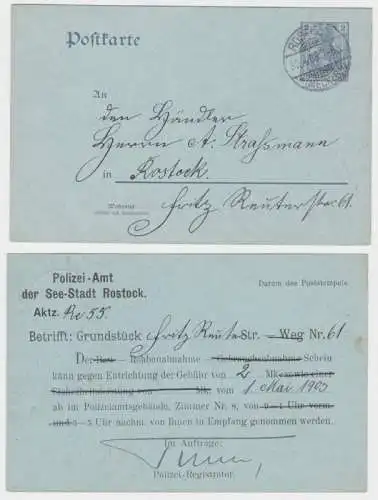 Postkarte
2
An
den Händler
Herrn A. Straßmann
in Rostock.
Wohnung
Fritz Reuterstr. 61.
Polizei-Amt
der See-Stadt Rostock.
Datum des Poststempels
Aktz. Re 55.
Betrifft: Grundstück Fritz Reute Str. Weg Nr. 61
Der Bau- Rohbauabnahme Gebrauchsabnahme Schein
kann gegen Entrichtung der Gebühr von 2 Mk. sowie einer
Mk. vom 1. Mai 1903
ab im Polizeiamtsgebäude, Zimmer Nr. 8, von 9–1 Uhr vorm.
und 3–5 Uhr nachm. von Ihnen in Empfang genommen werden.
Im Auftrage:
Polizei-Registrator.